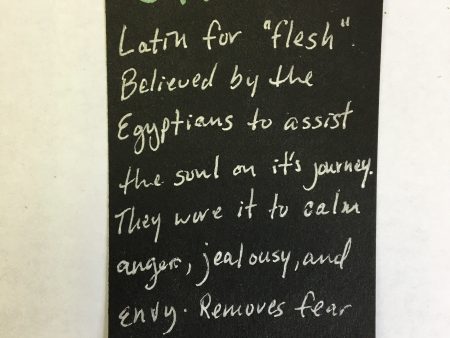 Latin for "flesh".
Believed by the
Egyptians to assist
the soul on it's journey.
They wore it to calm
anger, jealousy, and
envy. Removes fear